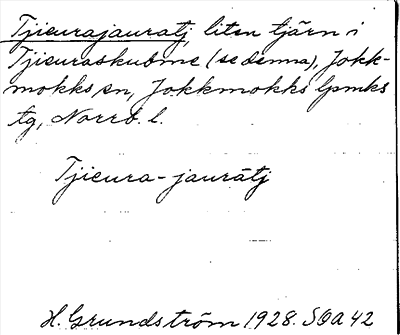 Tjieurajauratj, liten tjärn i
Tjieuraskubme (se denna), Jokk-
mokks sn, Jokkmokks lpmks
tg, Norrb. l.
Tjieura-jauratj
H. Grundström 1928. SOA 42